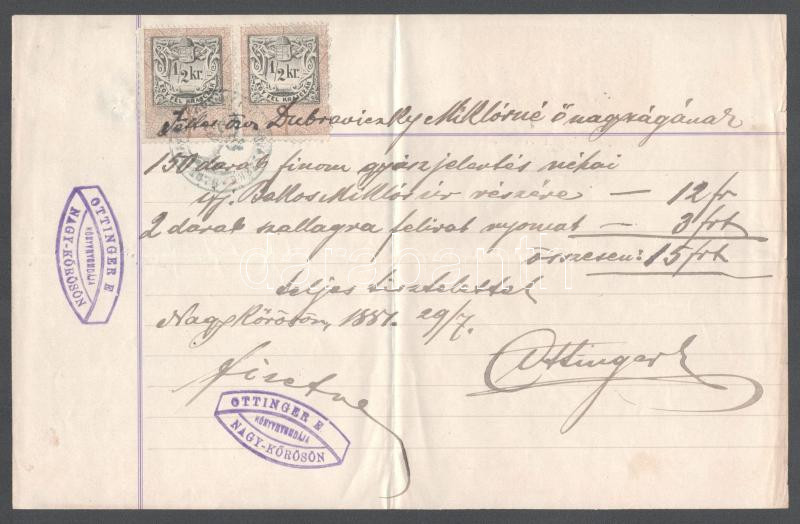 1/2 kr. 1/2 kr.
EGY FÉL KRAJCZÁR EGY FÉL KRAJCZÁR
özv Dubraviczky Miklósné ő nagyságának
150 darab finom gyászjelentés néhai
ifj. Miklós úr részére — 12 fr
2 darab szallagra felirat nyomat — 3 frt
összesen: 15 frt
teljes tisztelettel
Nagy Kőrösön, 1887. 29/7.
Ottinger E
fizetve
OTTINGER E
KÖNYVNYOMDÁJA
NAGY-KŐRÖSÖN
OTTINGER E
KÖNYVNYOMDÁJA
NAGY-KŐRÖSÖN